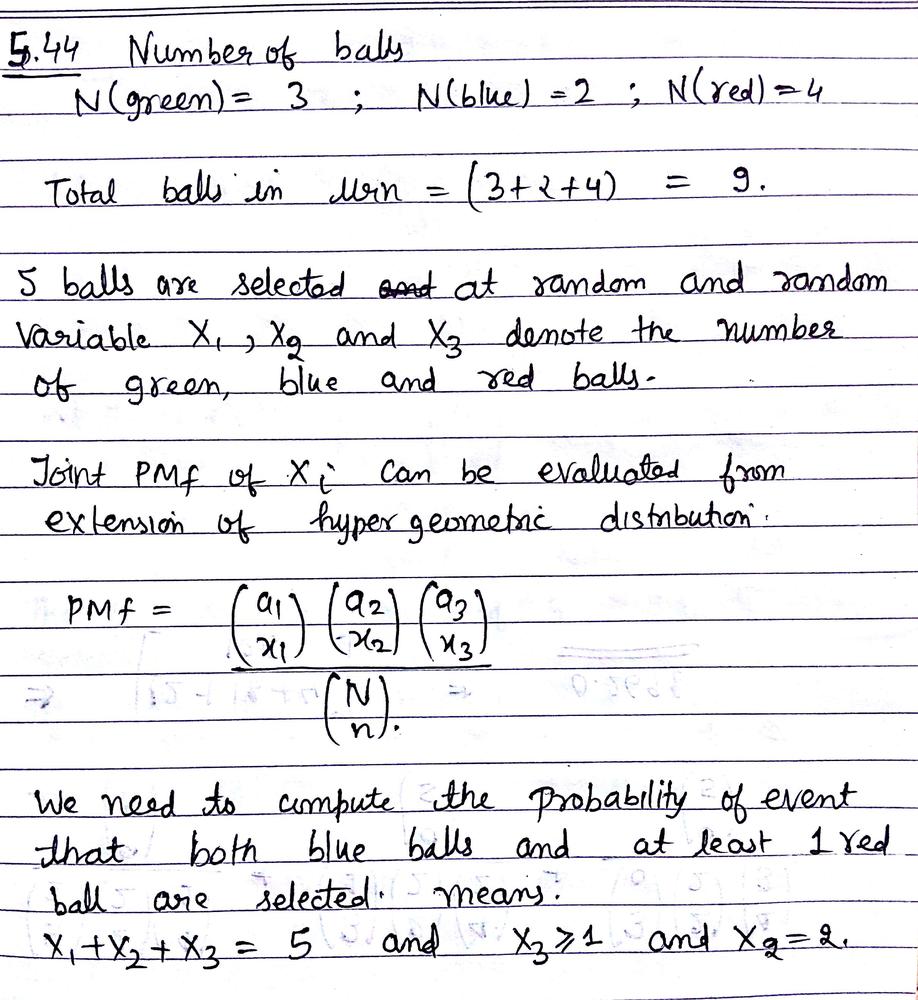 5.44 Number of balls
N(green) = 3 ; N(blue) = 2 ; N(red) = 4
Total balls in urn = (3+2+4) = 9.
5 balls are selected and at random and random
variable X₁, X₂ and X₃ denote the number
of green, blue and red balls.
Joint PMf of Xi can be evaluated from
extension of hyper geometric distribution.
PMf = (a₁ x₁) (a₂ x₂) (a₃ x₃)
(N n).
We need to compute the probability of event
that both blue balls and at least 1 red
ball are selected. means.
X₁+X₂+X₃ = 5 and X₃ ⩾ 1 and X₂ = 2.